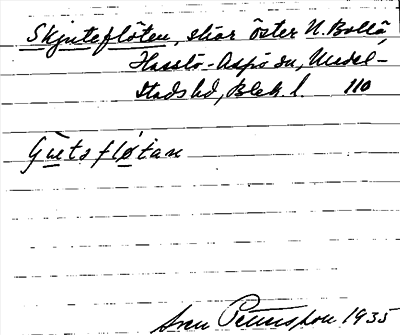 Skjuteflöten, skär öster N. Bollö,
Hasslö-Aspö sn, Medel-
stads hd, Blek. l. 110
Sven Petersson 1935